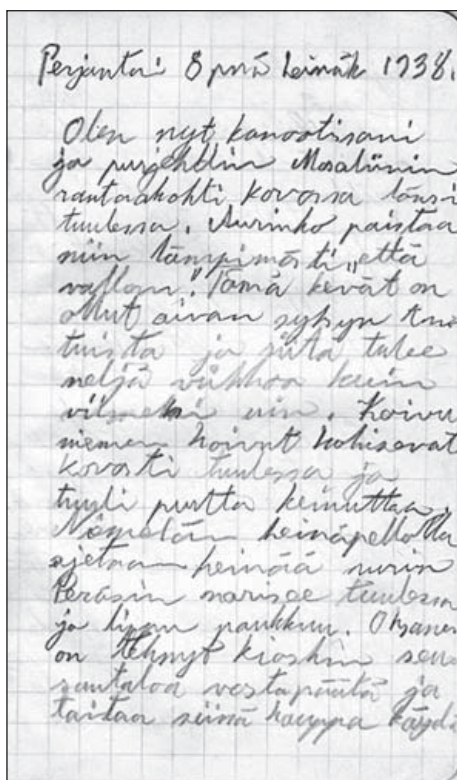 Perjantai 8 pnä heinäk 1938.
Olen nyt kanootissani
ja purjehdin Mosaliinin
rantaa kohti kovassa länsi
tuulessa. Aurinko paistaa
niin lämpimästi „että
vallan". Tämä kevät on
ollut aivan syksyn
tuista ja siitä tulee
neljä viikkoa kuin
viimeksi uin. Koivu
niemen koivut kohisevat
kovasti tuulessa ja
tyyli purtta keinuttaa.
heinäpellolla
ajetaan heinää nurin
Peräsin narisee tuulessa
ja lipun paukkuu.
on tehnyt kioskin seu
rantaloa vastapäätä ja
taitaa siinä kauppa käydä